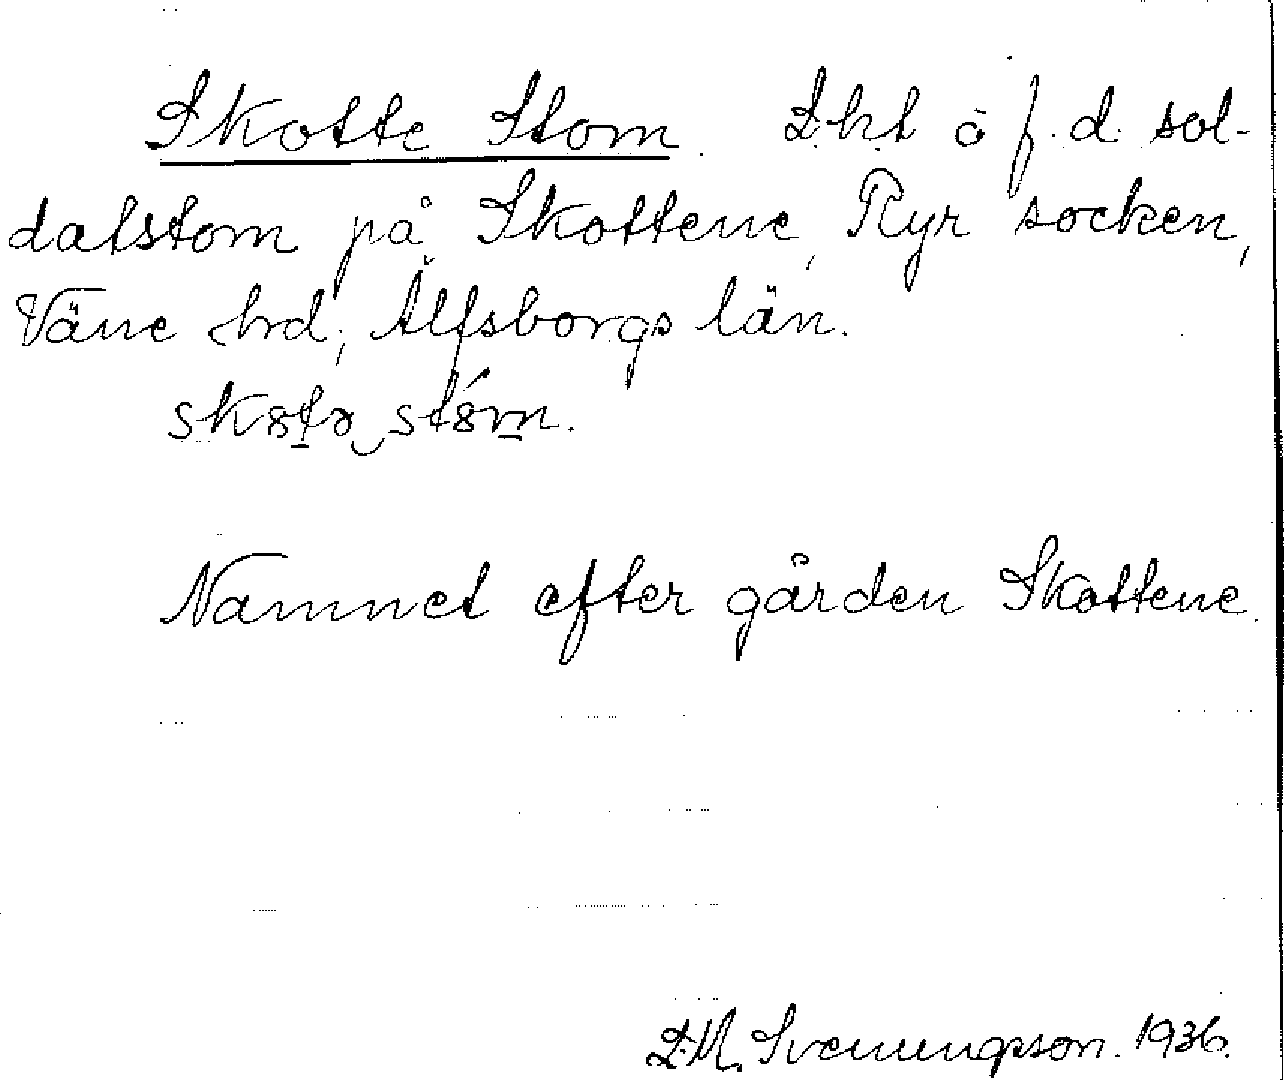 Skotte Stom. Lht å f.d. sol-
datstom på Skottene, Ryr socken,
Väne hrd, Älfsborgs län.
Namnet efter gården Skottene.
1936.